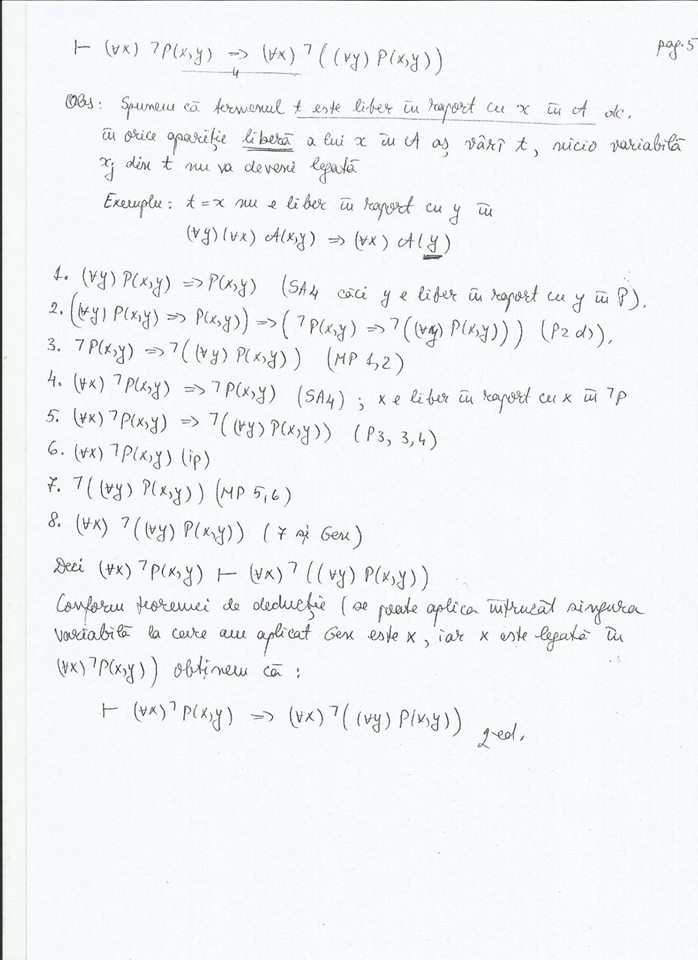 ⊢ (∀x) ⌝P(x,y) => (∀x) ⌝((∀y) P(x,y)) pag.5
4
Obs: Spunem că termenul t este liber în raport cu x în A dc.
în orice apariție liberă a lui x în A aș vârî t, nicio variabilă
xj din t nu va deveni legată
Exemplu: t=x nu e liber în raport cu y în
(∀y)(∀x) A(x,y) => (∀x) A(y)
1. (∀y) P(x,y) => P(x,y) (SA4 căci y e liber în raport cu y în P).
2. ((∀y) P(x,y) => P(x,y)) => (⌝P(x,y) => ⌝((∀y) P(x,y))) (P2 d)).
3. ⌝P(x,y) => ⌝((∀y) P(x,y)) (MP 1,2)
4. (∀x) ⌝P(x,y) => ⌝P(x,y) (SA4) ; x e liber în raport cu x în ⌝P
5. (∀x) ⌝P(x,y) => ⌝((∀y) P(x,y)) (P3, 3,4)
6. (∀x) ⌝P(x,y) (ip)
7. ⌝((∀y) P(x,y)) (MP 5,6)
8. (∀x) ⌝((∀y) P(x,y)) (7 și Gen)
Deci (∀x) ⌝P(x,y) ⊢ (∀x) ⌝((∀y) P(x,y))
Conform teoremei de deducție (se poate aplica întrucât singura
variabilă la care am aplicat Gen este x, iar x este legată în
(∀x) ⌝P(x,y)) obținem că:
⊢ (∀x) ⌝P(x,y) => (∀x) ⌝((∀y) P(x,y))
q-ed.